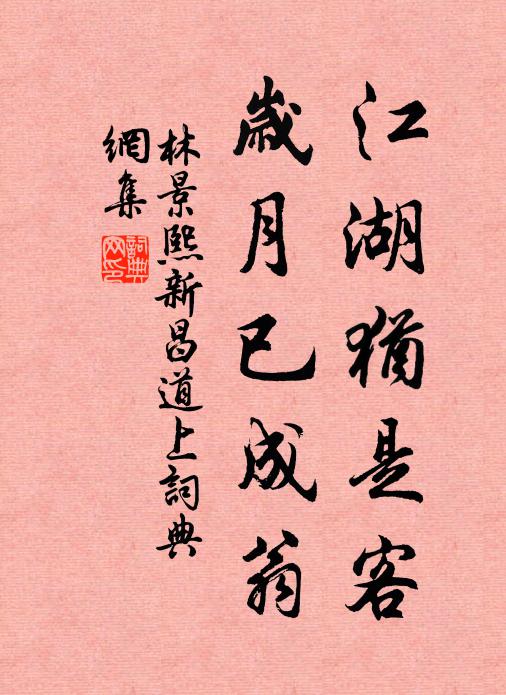 江湖猶是客
歲月已成翁
林景熙新昌道上詞典
網集
詞典
网印